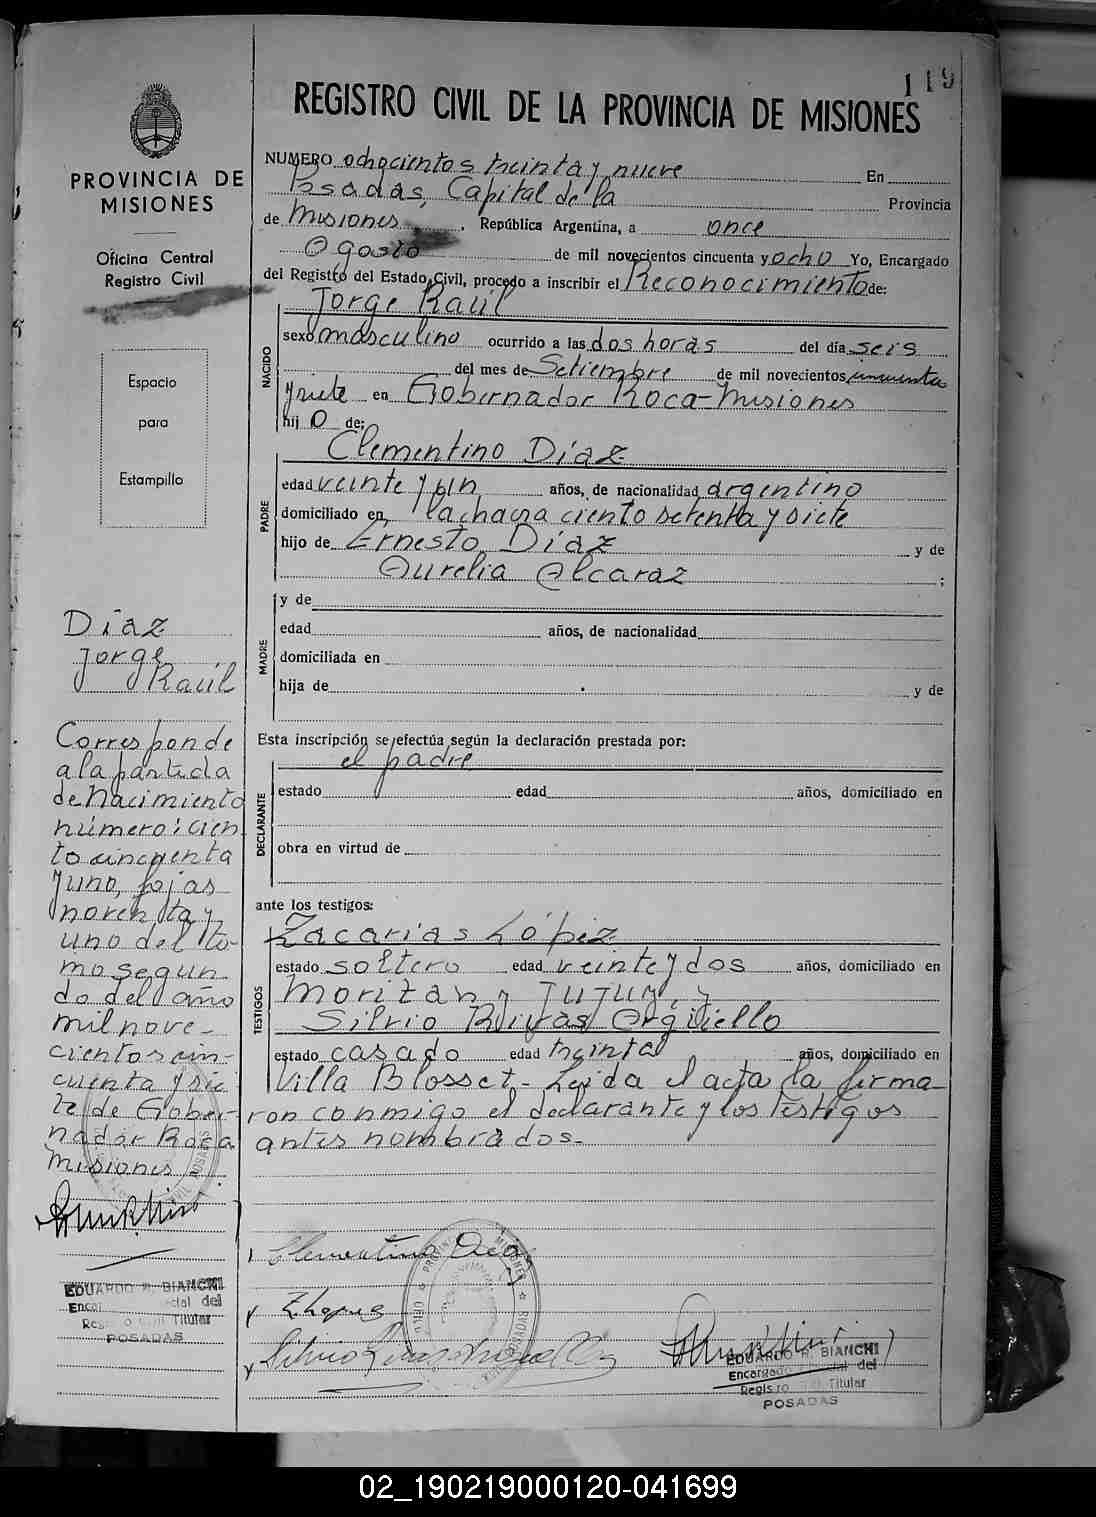 119
REGISTRO CIVIL DE LA PROVINCIA DE MISIONES
PROVINCIA DE
MISIONES
Oficina Central
Registro Civil
Espacio
para
Estampilla
NUMERO ochocientos treinta y nueve En
Posadas, Capital de la Provincia
de Misiones, República Argentina, a once
Agosto de mil novecientos cincuenta y ocho Yo, Encargado
del Registro del Estado Civil, procedo a inscribir el Reconocimiento de:
Jorge Raúl
NACIDO
sexo masculino ocurrido a las dos horas del día seis
del mes de Setiembre de mil novecientos cincuenta
y siete en Gobernador Roca-Misiones
hijo de:
Clementino Díaz
PADRE
edad veinte y un años, de nacionalidad argentino
domiciliado en, la chacra ciento setenta y siete
hijo de Ernesto Díaz y de
Aurelia Alcaraz ;
MADRE
y de
edad años, de nacionalidad
domiciliada en
hija de y de
Esta inscripción se efectúa según la declaración prestada por:
el padre
DECLARANTE
estado edad años, domiciliado en
obra en virtud de
ante los testigos:
Zacarías López
TESTIGOS
estado soltero edad veinte y dos años, domiciliado en
y Jujuy, y
Silvio Rivas Argüello
estado casado edad treinta años, domiciliado en
Villa Blosset,- Leida el acta, la firma-
ron conmigo el declarante y los testigos
antes nombrados.-
Díaz
Jorge
Raúl
Corresponde
a la partida
de Nacimiento
número: cien
to cincuenta
y uno, fojas
noventa y
uno del to-
mo segun
do del año
mil nove-
cientos cin-
cuenta y sie
te de Gober-
nador Roca
Misiones
Clementino Diaz
Z Lopez
EDUARDO R. BIANCHI
Titular
POSADAS
EDUARDO R. BIANCHI
Encargado del
Titular
POSADAS
02_190219000120-041699